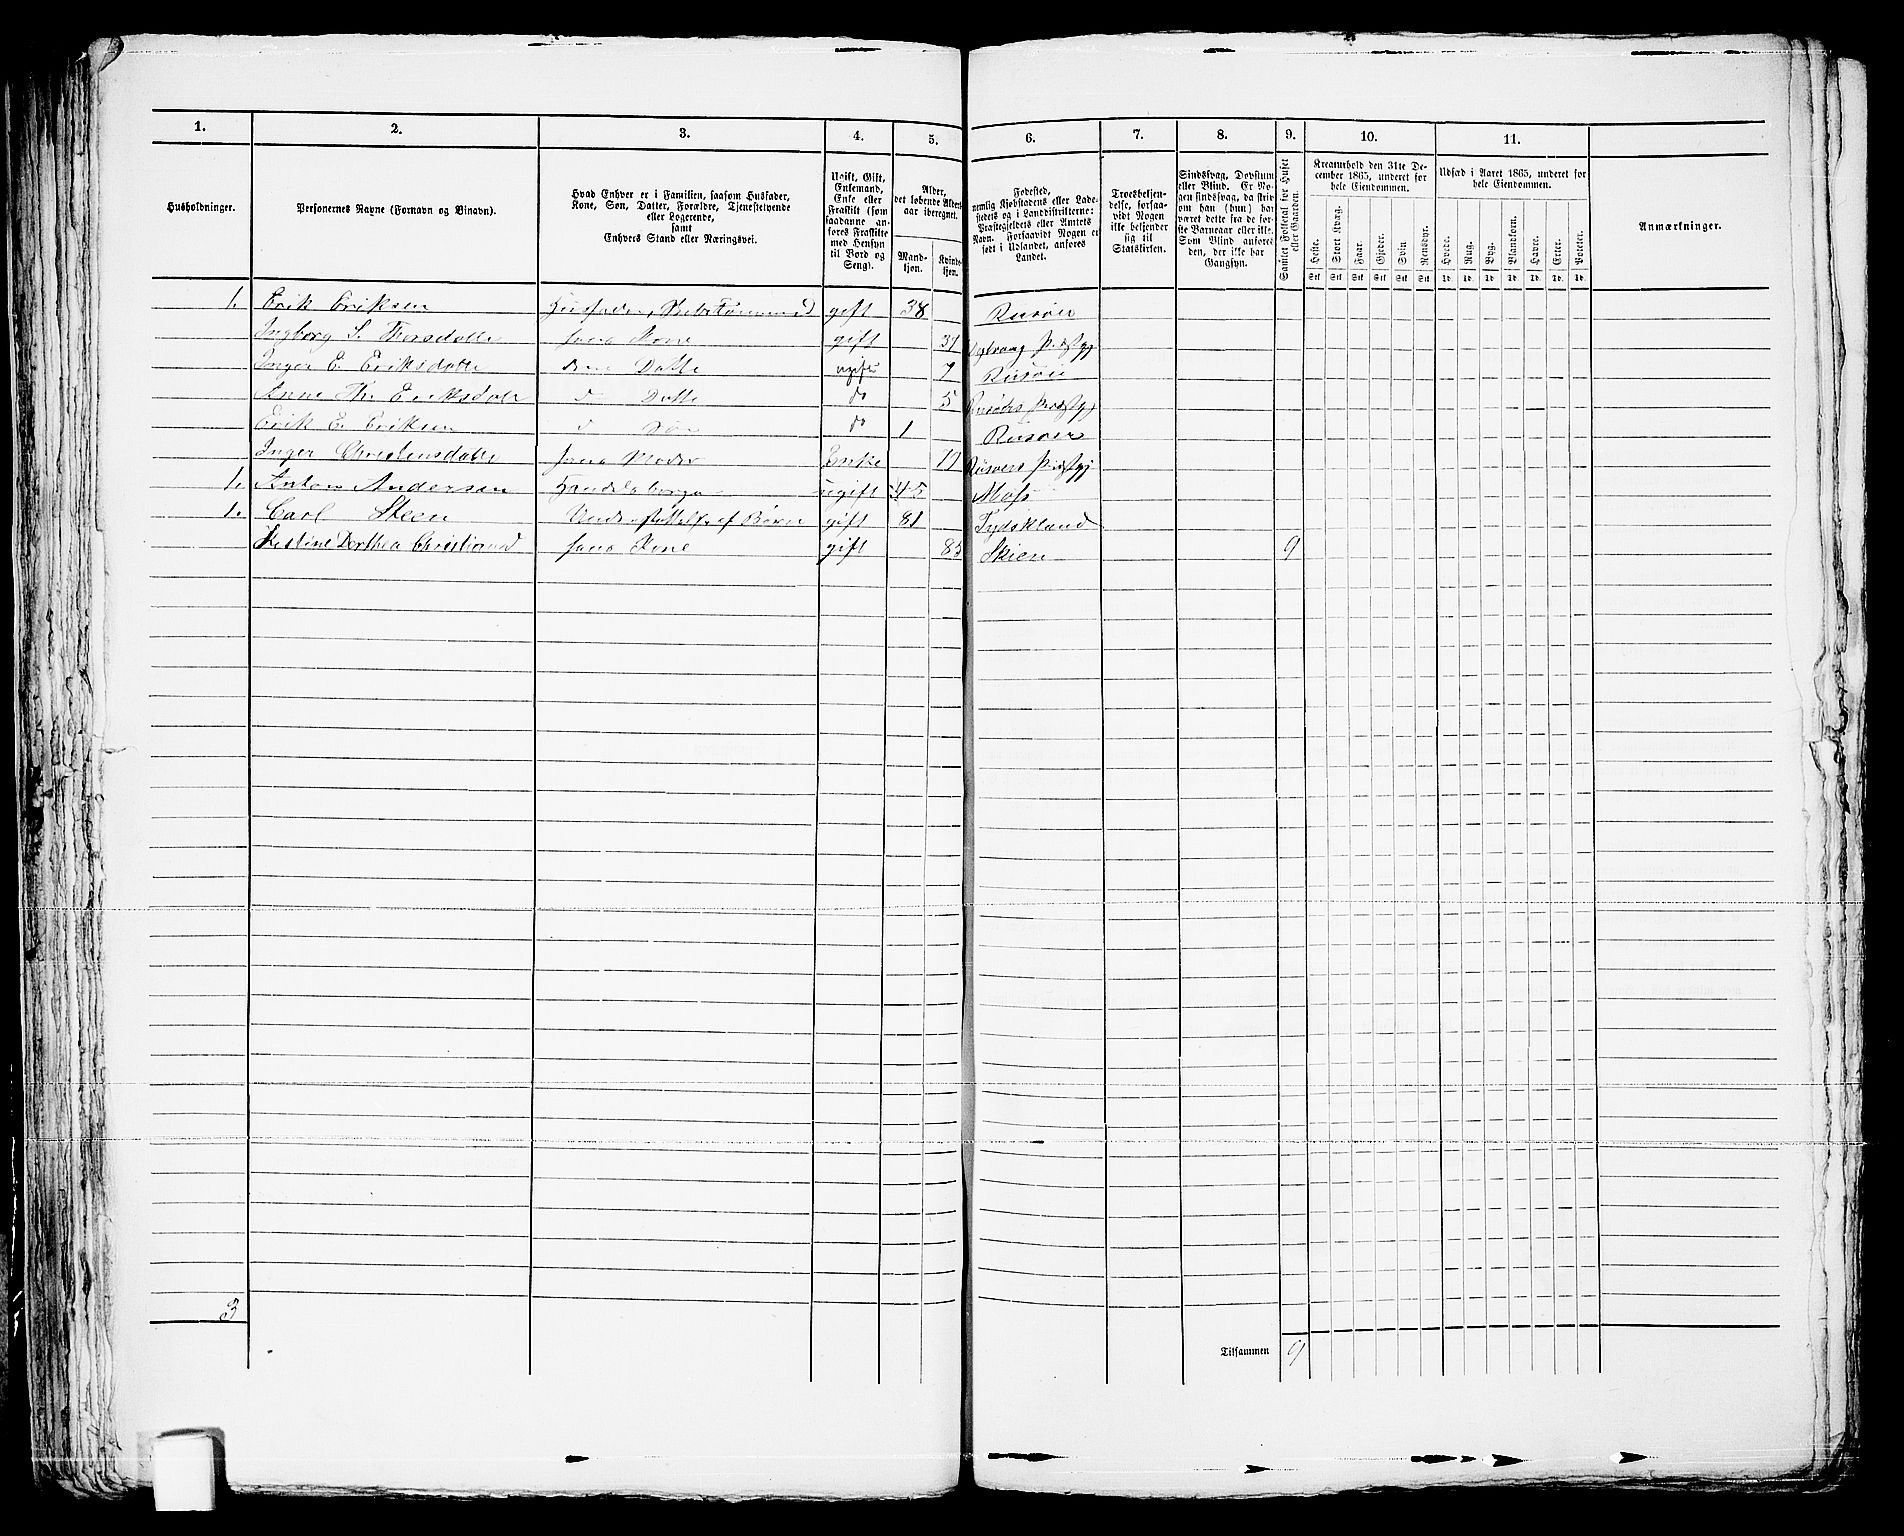 1. 2. 3. 4. 5. 6. 7. 8. 9. 10. 11.
Husholdninger.
Personernes Navne (Fornavn og Binavn).
Hvad Enhver er i Familien, saasom Husfader,
Kone, Søn, Datter, Forældre, Tjenestetyende
eller Logerende,
samt
Enhvers Stand eller Næringsvei.
Ugift, Gift,
Enkemand,
Enke eller
Fraskilt (som
saadanne an-
føres Fraskilte
med Hensyn
til Bord og
Seng).
Alder,
det løbende Alders-
aar iberegnet.
Mand-
kjøn.
Kvinde-
kjøn.
Fødested,
nemlig Kjøbstadens eller Lade-
stedets og i Landdistrikterne:
Præstegjeldets eller Amtets
Navn. Forsaavidt Nogen er
født i Udlandet, anføres
Landet.
Troesbekjen-
delse, forsaa-
vidt Nogen
ikke bekjender
sig til
Statskirken.
Sindssvag, Døvstum
eller Blind. Er No-
gen sindssvag, da skri-
ves om han (hun) har
været dette fra de før-
ste Barneaar eller ikke.
Som Blind anføres
den, der ikke har
Gangsyn.
Samlet Folketal for Huset
eller Gaarden.
Kreaturhold den 31te De-
cember 1865, underet for
hele Eiendommen.
Heste. Stort Kvæg. Faar. Gjeder. Svin. Rensdyr.
Stk Stk Stk Stk Stk Stk
Udsæd i Aaret 1865, underet for
hele Eiendommen.
Hvede. Rug. Byg. Blandkorn. Havre. Erter. Poteter.
Td. Td. Td. Td. Td. Td. Td.
Anmærkninger.
1. Erik Eriksen Husfader, gift 38 Risöer
Ingborg S. Thorsdatte hans Kone gift 31
Inger E. Eriksdatte Datte ugift 7 Risöer
Anne Eriksdatr d Datte do 5 Risöers Præstgj
Erik E. Eriksen d Søn do 1 Risöer
Inger Christensdatte hans Moder Enke Risöers Præstgj
1. Anton Andersen ugift 45 Moss
1. Carl Steen af Børn gift 81 Tydskland
Dorthea hans Kone gift 83 Skien 9
3
Tilsammen 9